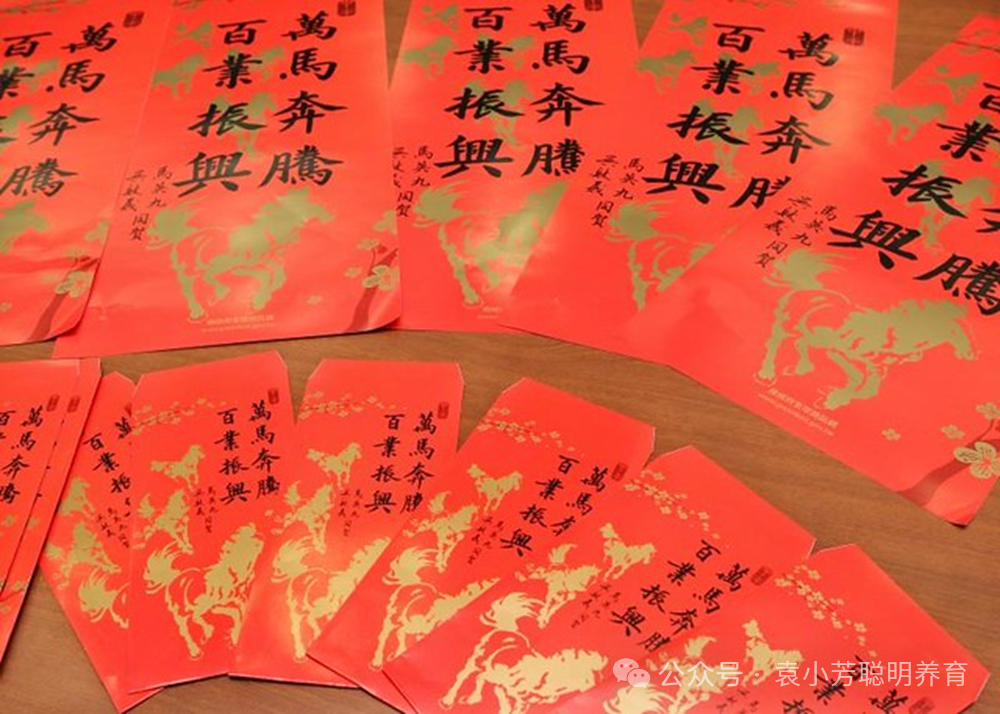 萬馬奔騰
百業
萬馬奔騰
百業振興
馬英九
吳敦義同賀
萬馬奔騰
百業振興
萬馬奔騰
百業振興
馬英九
吳敦義同賀
騰
百業振興
馬英九
吳敦義同賀
萬馬奔騰
萬馬
百業振
萬馬奔騰
百業振興
馬英九
吳敦義同賀
萬馬奔騰
百業振興
萬馬奔
百業振興
萬馬奔騰
百業振興
萬
百業
公众号 · 袁小芳聪明养育